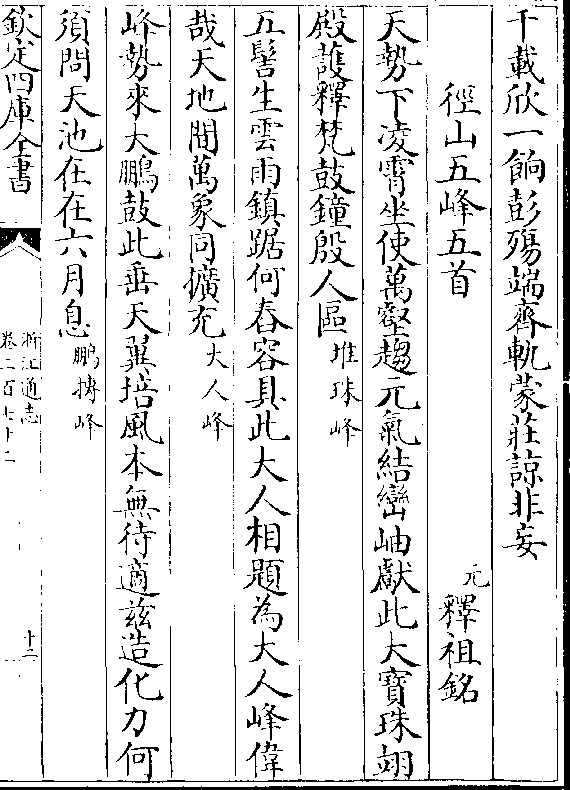 千載欣一餉彭殤端齊軌蒙莊諒非妄
徑山五峰五首
元
釋祖銘
天勢下凌霄坐使萬壑趨元氣結巒岫獻此大寶珠翊
殿護釋梵鼓鐘殷人區
堆珠峰
五髻生雲雨鎮踞何舂容具此大人相題為大人峰偉
哉天地間萬象同擴充
大人峰
峰勢來大鵬鼓此垂天翼培風本無待適兹造化力何
須問天池在在六月息
鵬搏峰
欽定四庫全書
浙江通志
卷二百七十二
十二